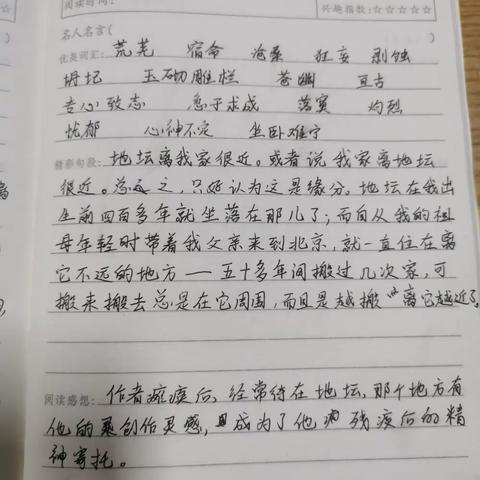 阅读时间: 兴趣指数:☆☆☆☆☆
名人名言(
优美词汇: 荒芜 宿命 沧桑 狂妄 剥蚀
坍圮 玉砌雕栏 苍幽 亘古
专心致志 急于求成 落寞 灼烈
忧郁 心神不定 坐卧难宁
精彩句段: 地坛离我家很近。或者说我家离地坛
很近。总之,只好认为这是缘分。地坛在我出
生前四百多年就坐落在那儿了;而自从我的祖
母年轻时带着我父亲来到北京,就一直住在离
它不远的地方——五十多年间搬过几次家,可
搬来搬去总是在它周围,而且是越搬离它越近了。
阅读感想: 作者瘫痪后,经常待在地坛,那个地方有
他的创作灵感,且成为了他残疾后的精
神寄托。